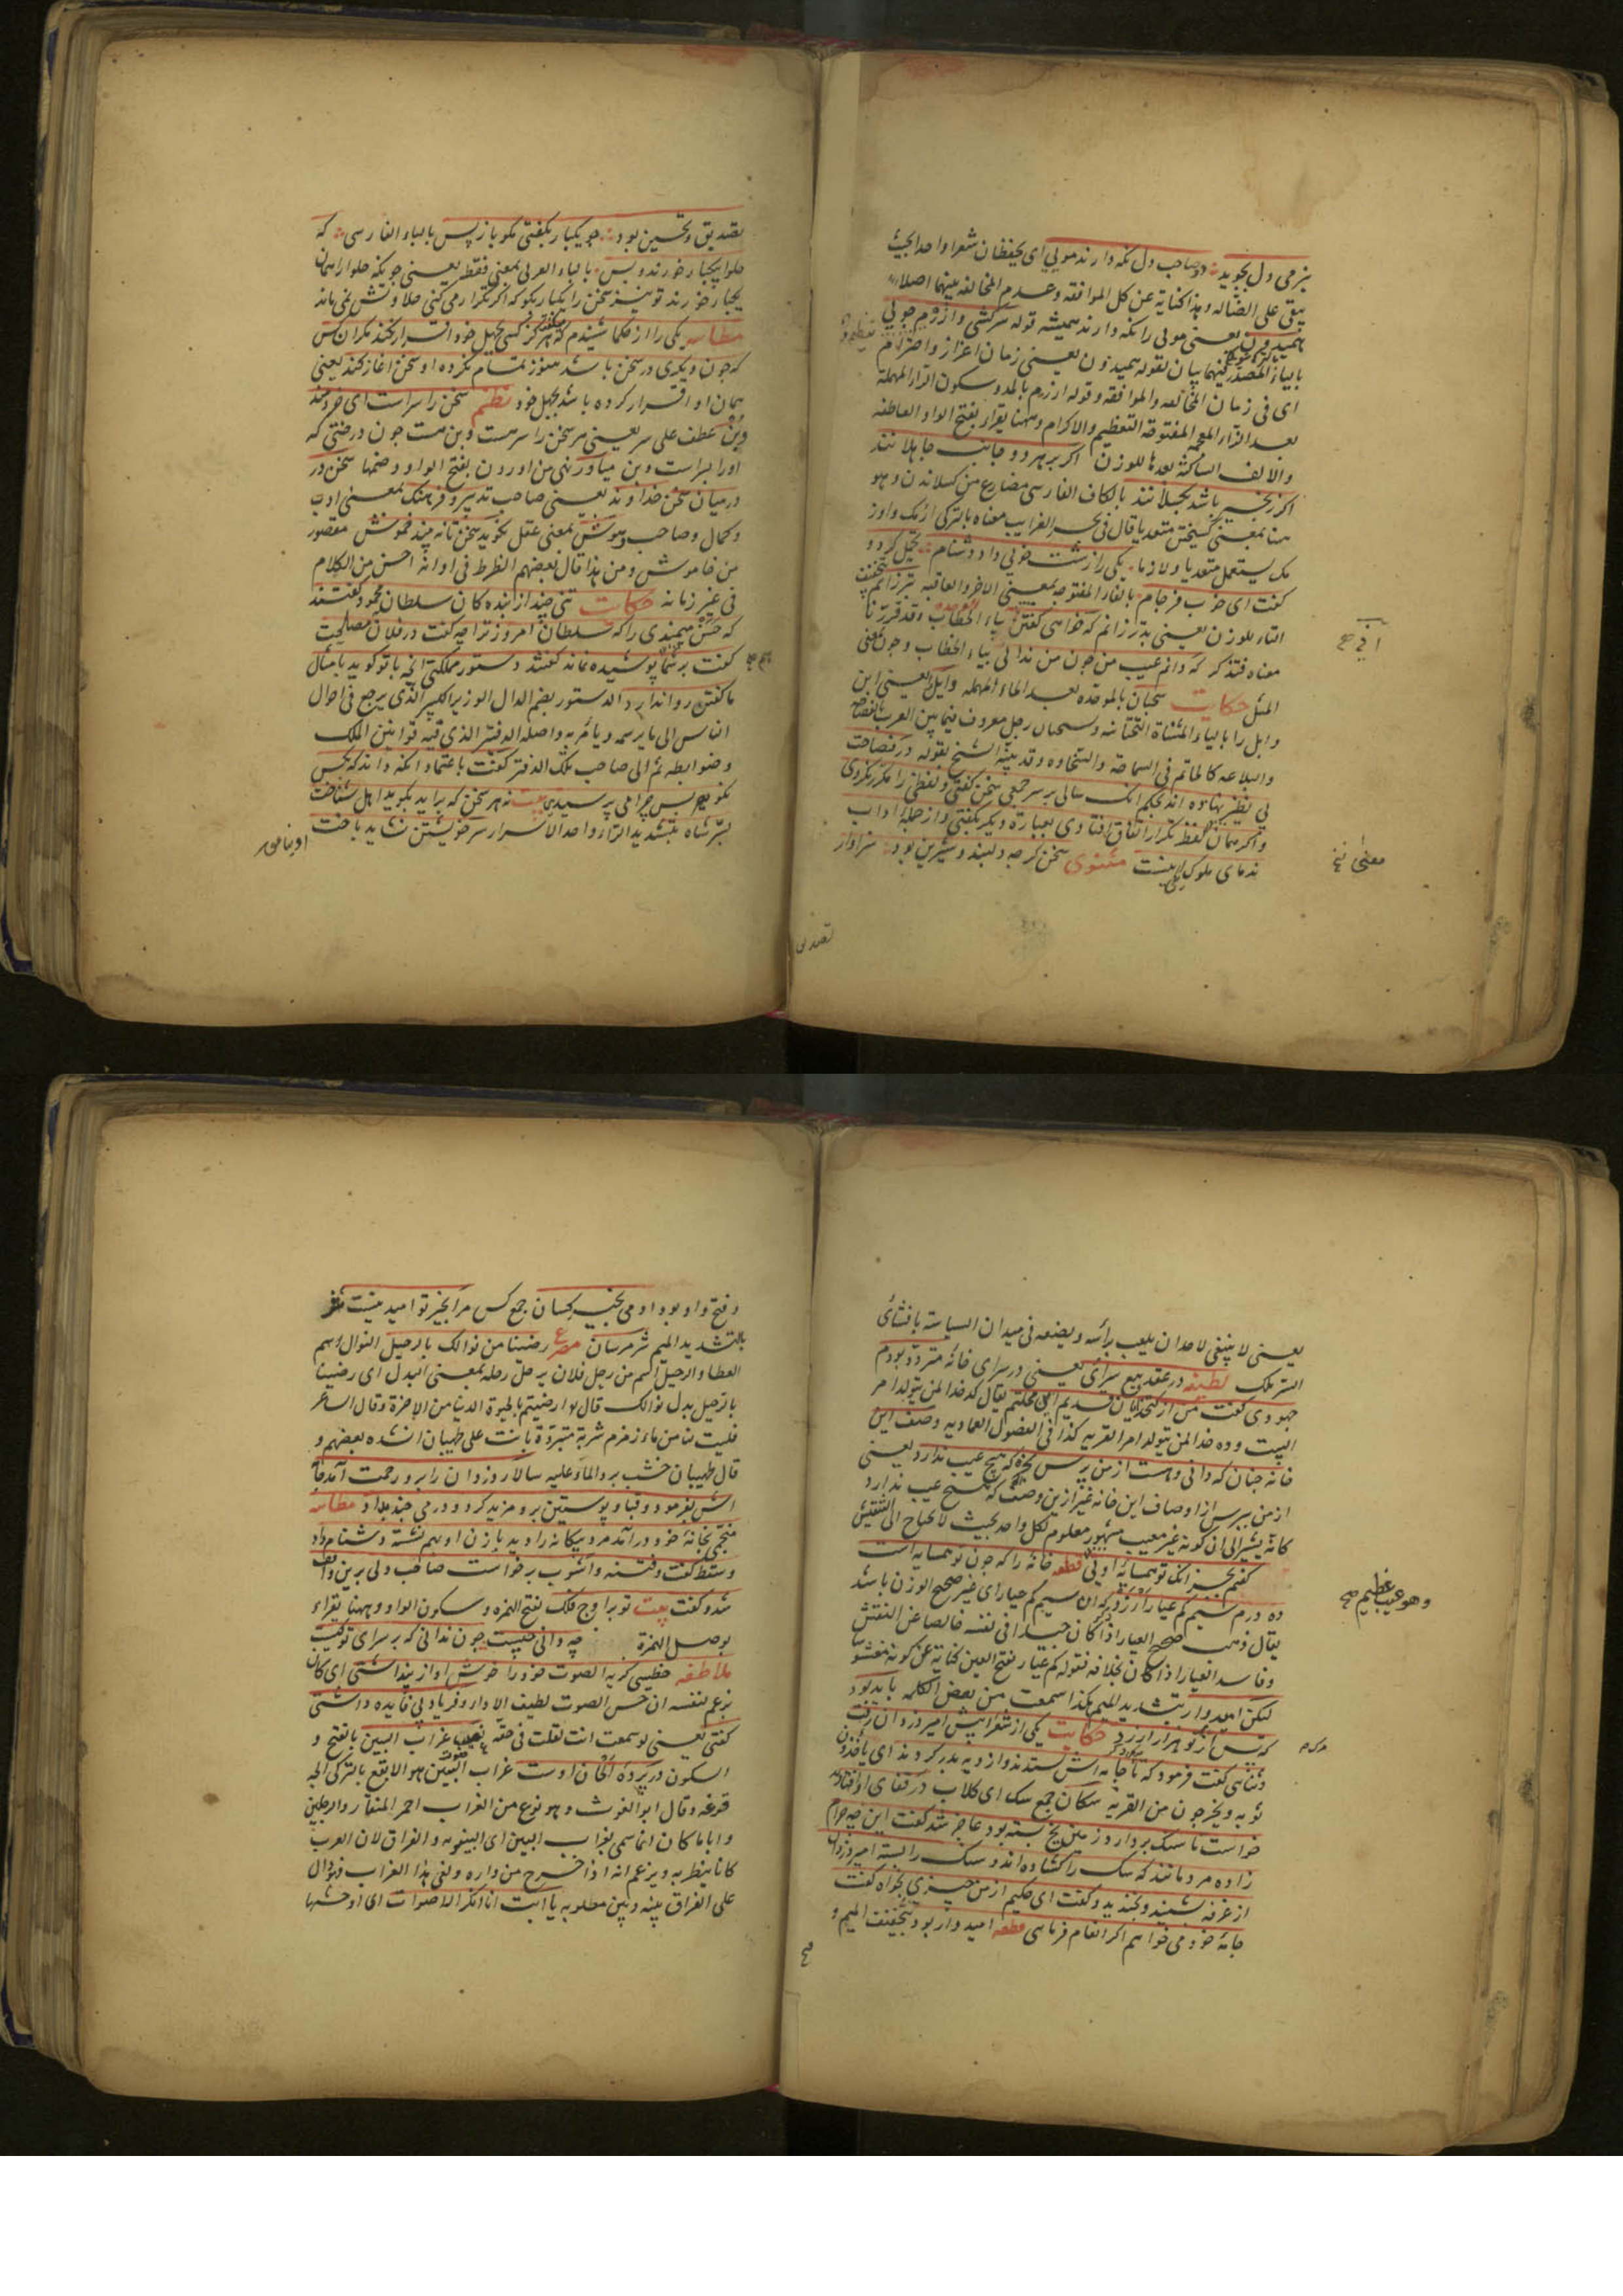 بنرمی دل بجوید دو صاحب دل نکه دارند مویی ای یحفظان شعرا واحدا بحیث
یبقی علی اتصاله وهذا کنایة عن کل الموافقه وعدم المخالفه بینهما اصلا
همیدون یعنی مویی را نکه دارند همیشه قوله سرکشی وازرم جویی
بالیاء المصدریه فیهما بیان لقوله همیدون یعنی زمان اعزاز واحترام
ای فی زمان المخالفه والموافقه وقوله ازرم بالمد وسکون الراء المهملة
بعد الزاء المعجمه المفتوحة التعظیم والاکرام وههنا یقراء بفتح الواو العاطفه
والالف الساکنة بعدها للوزن اکر بر هر دو جانب جاهلانند
اکر زنجیر باشد بکسلانند بالکاف الفارسی مضارع من کسلاندن وهو
هنا بمعنی کسیختن متعدیا قال فی بحر الغرایب معناه بالترکی ازمک واوز
مک یستعمل متعدیا ولازما یکی را زشت خویی داد دشنام تحمل کرد و
کفت ای خوب فرجام بالفاء المفتوحه بمعنی الاخر والعاقبه بتر زانم بتخفیف
التاء للوزن یعنی بدتر زانم که خواهی کفتن بیاء الخطاب وقد قررنا
معناه فتذکر که دانم عیب من چون من ندانی بیاء الخطاب وچون بمعنی
المثل حکایت سحبان بالموحده بعد الحاء المهمله وایل یعنی ابن
وایل را بالیاء المثناة التحتانیه وسحبان رجل معروف فیما بین العرب بالفصاحه
والبلاغه کالحاتم فی السماحة والسخاوه وقد بینه الشیخ بقوله در فصاحت
بی نظیر نهاده اند بحکم آنک سالی بر سر جمعی سخن کفتی ولفظی را مکرر نکردی
واکر همان لفظ تکرار اتفاق افتادی بعبارة دیکر بکفتی واز جمله اداب
ندمای ملوک یکی اینست مثنوی سخن کرچه دلبند وشیرین بود سزاوار
معنی نخ
تصدیق
تصدیق وتحسین بود چو یکبار بکفتی مکو باز پس بالباء الفارسی که
حلوا بیکبار خورند وبس بالباء العربی بمعنی فقط یعنی چونکه حلوا را همان
یکبار خورند تو نیز سخن را یکبار بکو که اکر تکرار می کنی حلاوتش نمی ماند
مطایبه یکی را از حکما شنیدم که میکفت هرکز کسی بجهل خود اقرار نکند مکر ان کس
که چون دیکری در سخن باشد هنوز تمام نکرده او سخن اغاز کند یعنی
همان او اقرار کرده باشد بجهل خود نظم سخن را سر است ای خردمند
وبن عطف علی سر یعنی مر سخن را سر هست وبن هست چون درختی که
اورا سر است وبن میاور نهی من اوردن بفتح الواو وضمها سخن در
در میان سخن خداوند یعنی صاحب تدبیر وفرهنک بمعنی ادب
وکمال وصاحب هوش بمعنی عقل نکوید سخن تا نه بیند خموش مقصور
من خاموش ومن هذا قال بعضهم الظرط فی اوانه احسن من الکلام
فی غیر زمانه حکایت تنی چند از بنده کان سلطان محمود کفتند
که حسن میمندی را که سلطان امروز ترا چه کفت در فلان مصلحت
کفت بر شما پوشیده نماند کفتند دستور مملکتی انچه با تو کوید بامثال
ما کفتن روا ندارد الدستور بضم الدال الوزیر الکبیر الذی یرجع فی احوال
الناس الی ما یرسمه ویامر به واصله الدفتر الذی فیه قوانین الملک
وضوابطه ثم الی صاحب تلک الدفتر کفت باعتماد انکه داند که بکس
نکویم پس چرا می پرسیدی بیت نه هر سخن که براید بکوید اهل شناخت
بسر شاه بتشدید الراء واحد الاسرار سر خویشتن نشاید باخت
یعنی لا ینبغی لاحد ان یلعب برأسه ویضعه فی میدان السیاسة بافشای
السر تلک لطیفه در عقد بیع سرای یعنی در سرای خانهٔ متردد بودم
جهودی کفت من از کدخدایان قدیم این محلتم یقال کدخدا لمن یتولد امر
البیت وده خدا لمن یتولد امر القریه کذا فی الفصول العمادیه وصف این
خانه چنان که دانی وهست از من پرس بخر که هیچ عیب ندارد یعنی
از من بپرس از اوصاف این خانه غیر ازین وصف که هیچ عیب ندارد
کانه یشیر الی ان کونه غیر معیب مشهور معلوم لکل واحد بحیث لا یحتاج الی التفتیش
کفتم بجز انک تو همسایهٔ اویی قطعه خانهٔ را که چون تو همسایه است
ده درم سیم کم عیار ارزد که ان سیم کم عیار ای غیر صحیح الوزن باشد
یقال ذهب صحیح العیار اذا کان جیدا فی نفسه خالصا عن النقش
وفاسد العیار اذا کان بخلافه فقوله کم عیار بفتح العین کنایة عن کونه مغشوشا
لیکن امیدوار بتشدید المیم هکذا سمعت من بعض الکلمه باید بود
که پس از تو هزار ارزد حکایت یکی از شعرا پیش امیر دزدان رفت
وثنایی کفت فرمود که تا جامه اش بستدند واز ده بدر کردند ای یاخذون
ثوبه ویخرجون من القریه سکان جمع سک ای کلاب در قفای او افتادند
خواست تا سنک بردارد زمین یخ بسته بود عاجز شد کفت این چه حرام
زاده مردمانند که سک را کشاده اند وسنک را بسته امیر دزدان
از غرفه بشنید وبخندید وکفت ای حکیم از من چیزی بخواه کفت
جامهٔ خود می خواهم اکر انعام فرمایی قطعه امیدوار بود بتخفیف المیم و
وهو عیب عظیم صح
وفتح واو بود ادمی بخیر کسان جمع کس مرا بخیر تو امید نیست شر
بالتشدید المیم شر مرسان مصرع رضینا من نوالک بالرحیل النوال اسم
العطا والرحیل اسم من رحل فلان یرحل رحله بمعنی البدل ای رضینا
بالرحیل بدل نوالک قال ارضیتم بالحیوة الدنیا من الاخرة وقال الشاعر
فلیت لنا من ماء زمزم شربة مبردة باتت علی طهیان انشده بعضهم و
قال طهیان خشب برد الماء علیه سالار دزدان را برو رحمت آمد جامه
اش بفرمود وقبا وپوستین برو مزید کرد ودرمی چند بداد مطایبه
منجمی بخانهٔ خود درآمد مرد بیکانه را دید با زن او بهم نشسته دشنام داد
وسقط کفت وفتنه واشوب برخواست صاحب دلی برین واقف
شد وکفت بیت تو بر اوج فلک بفتح الهمزه وسکون الواو وههنا یقراء
بوصل الهمزة چه دانی چیست چون ندانی که بر سرای تو کیست
ملاطفه خطیبی کریه الصوت خود را خوش اواز پنداشتی ای کان
یزعم لنفسه ان حسن الصوت لطیف الادا وفریاد بی فایده داشتی
کفتی یعنی لو سمعت انت لقلت فی حقه نعیب غراب البین بالفتح و
السکون در پردهٔ الحان اوست غراب البین هو الابقع بالترکی الجه
قرغه وقال ابو الغوث وهو نوع من الغراب احمر المنقار والرجلین
وایاما کان انما سمی بغراب البین ای البینونه والفراق لان العرب
کانا ینظر به ویزعم انه اذا خرج من داره ولقی هذا الغراب فهو دال
علی الفراق بینه وبین مطلوبه یا ایت ان انکر الاصوات ای اوحشها